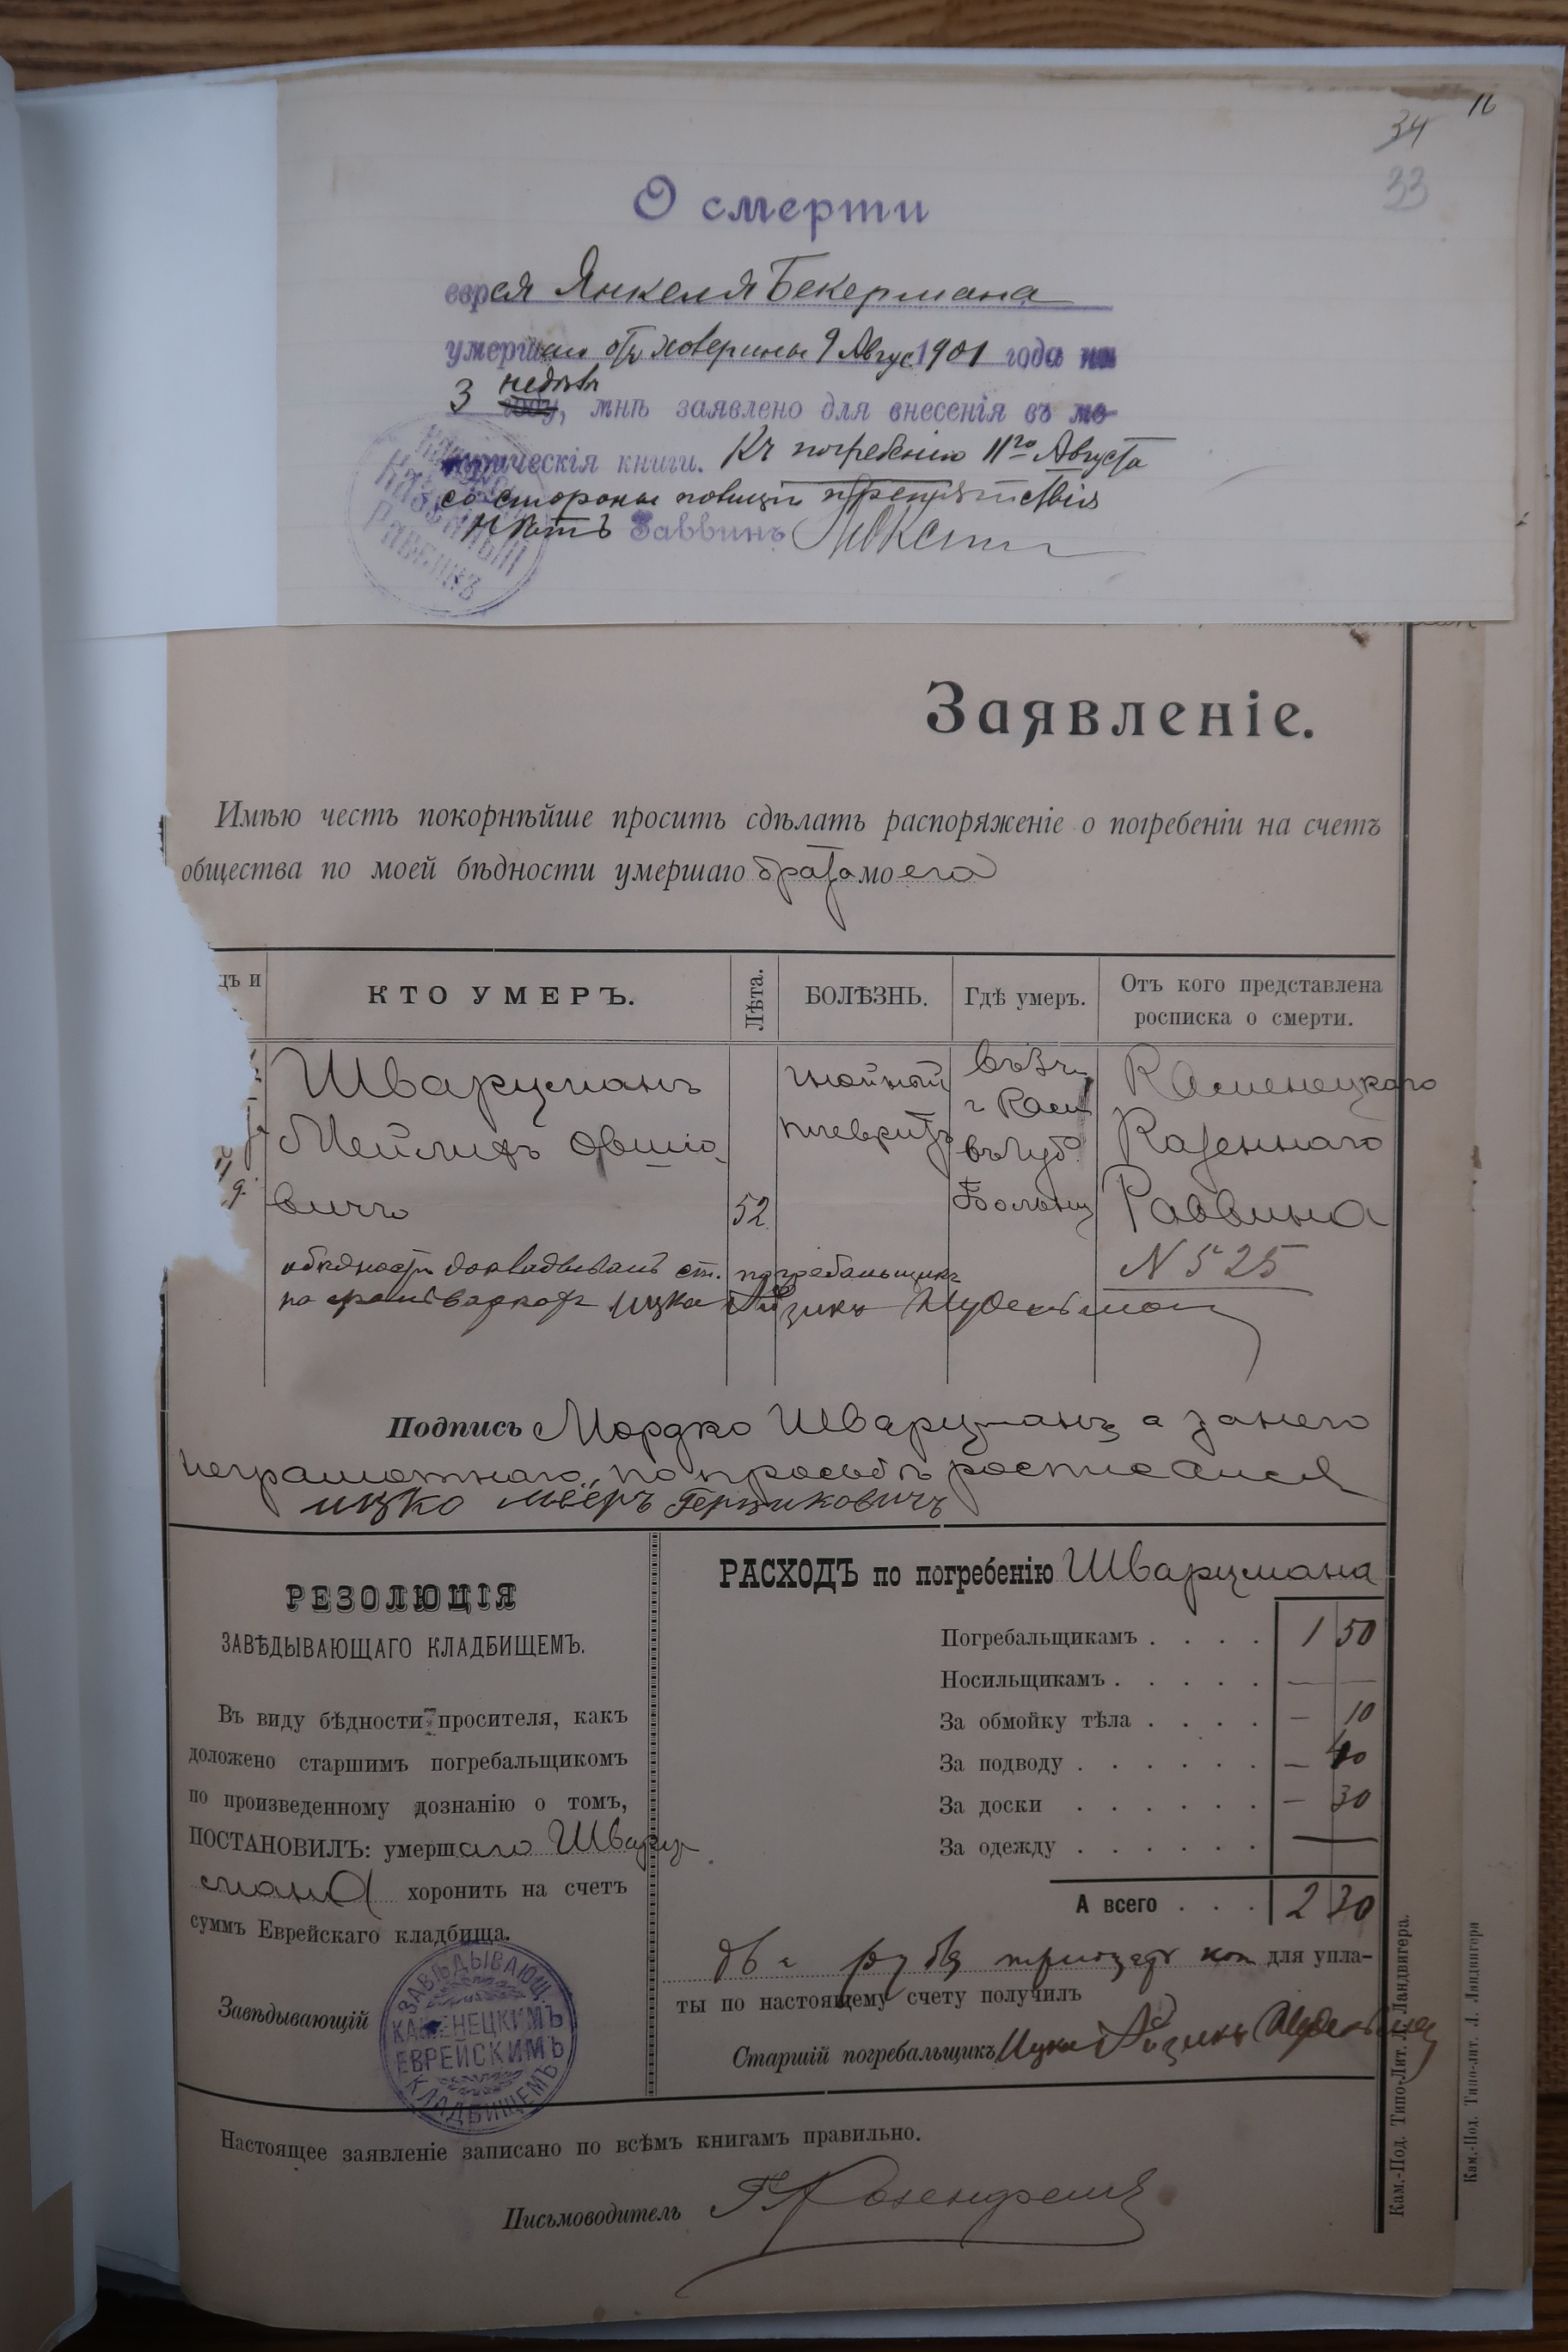 16
34
33
О смерти
еврея Янкеля Бекермана
умершаго отъ холерины 9 Авгус. 1901 года
3 недѣль, мнѣ заявлено для внесенія въ ме-
трическія книги. Къ погребенію 11го Августа
со стороны полиціи препятствія
нѣтъ Раввинъ
Заявленіе.
Имѣю честь покорнѣйше просить сдѣлать распоряженіе о погребеніи на счетъ
общества по моей бѣдности умершаго брата моего
цъ и
КТО УМЕРЪ.
Лѣта.
БОЛѢЗНЬ.
Гдѣ умеръ.
Отъ кого представлена
росписка о смерти.
Шварцманъ
Мейлихъ Овшіо
вичъ
52
гнойный
плевритъ
г Кам
въ Губ.
Больни
Каменецкаго
Казеннаго
Раввина
N 525
о бѣдности докладывалъ ст. погребальщикъ
Ицко Айзикъ
Подпись Мордко Шварцманъ а за него
неграмотнаго, по просьбѣ росписался
Ицко Мееръ Герциковичъ
РЕЗОЛЮЦІЯ
ЗАВѢДЫВАЮЩАГО КЛАДБИЩЕМЪ.
Въ виду бѣдности просителя, какъ
доложено старшимъ погребальщикомъ
по произведенному дознанію о томъ,
ПОСТАНОВИЛЪ: умершаго Шварц
мана хоронить на счетъ
суммъ Еврейскаго кладбища.
Завѣдывающій
ЗАВѢДЫВАЮЩ.
КАМЕНЕЦКИМЪ
ЕВРЕЙСКИМЪ
КЛАДБИЩЕМЪ
РАСХОДЪ по погребенію Шварцмана
Погребальщикамъ . . . . 1 50
Носильщикамъ . . . . . — —
За обмойку тѣла . . . . — 10
За подводу . . . . . . — 40
За доски . . . . . . — 30
За одежду . . . . . . —
А всего . . . 2 30
два рубля тридцать коп для упла-
ты по настоящему счету получилъ
Старшій погребальщикъ Ицко Айзикъ
Настоящее заявленіе записано по всѣмъ книгамъ правильно.
Письмоводитель
Кам.-Под. Типо-Лит. Л. Ландвигера.
Кам.-Под. Типо-лит. Л. Ландвигера